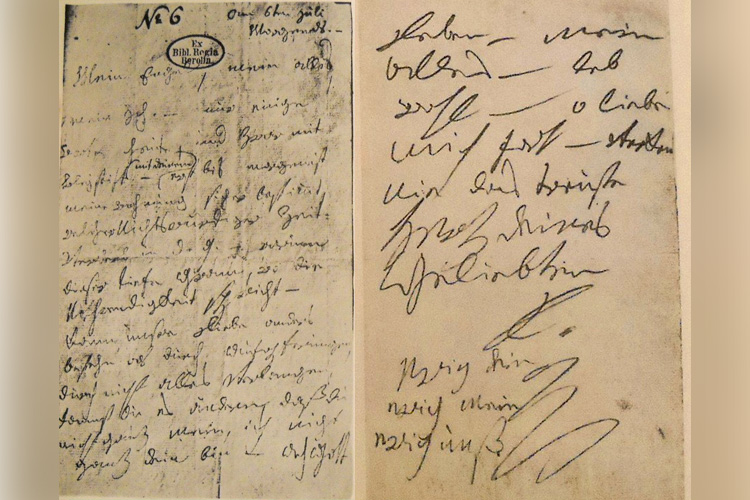 No 6
am 6ten Juli
Morgends. –
Ex
Bibl. Regia
Berolin.
Mein Engel, mein alles
mein Ich. – nur einige
Worte heute, und zwar mit
Bleistift – (mit deinem) erst bis morgen ist
meine Wohnung sicher bestimmt,
welcher Nichtswürdiger Zeit-
verderb in d. g. – warum
dieser tiefe Gram, wo die
Nothwendigkeit spricht –
Kann unsre Liebe anders
bestehn als durch Aufopferungen,
durch nicht alles verlangen,
kannst du es ändern, daß du
nicht ganz mein, ich nicht
ganz dein bin – Ach Gott
Leben – mein
alles – leb
wohl – o liebe
mich fort – verken
nie das treuste
Herz deines
Geliebten
L.
ewig dein
ewig mein
ewig unß